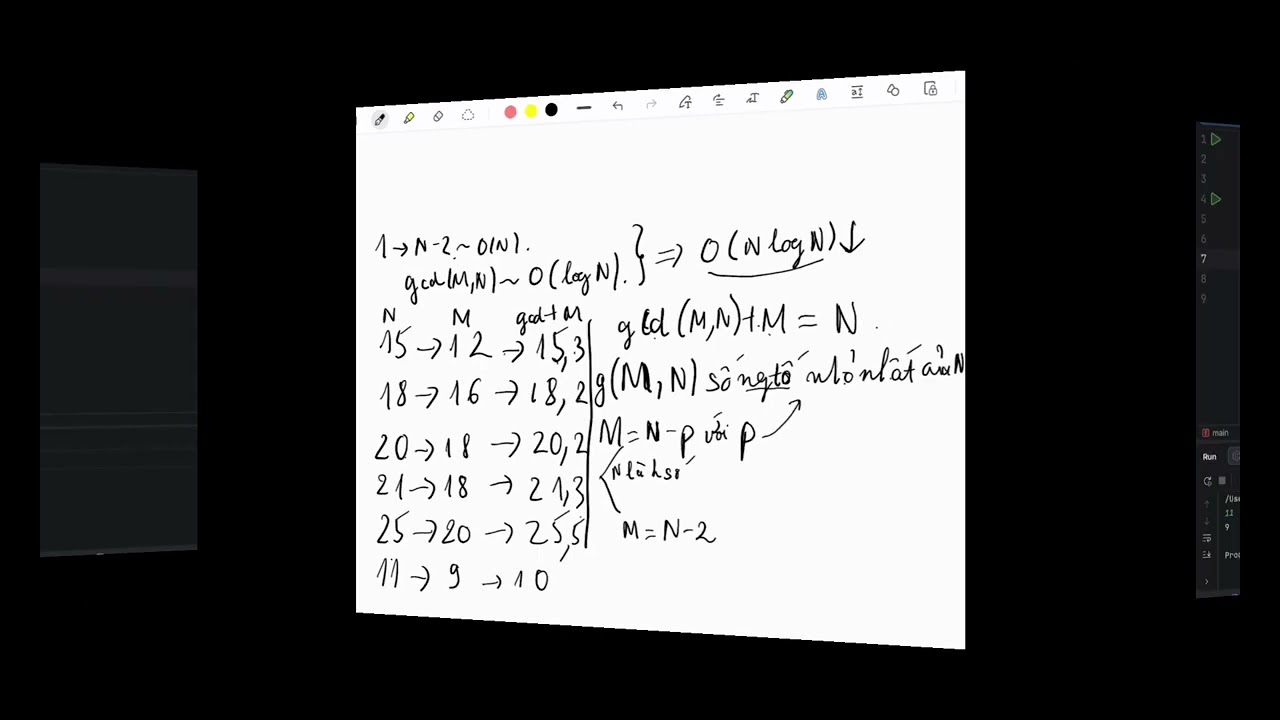 1 → N-2 ~ O(N).
gcd(M,N) ~ O(logN). } ⇒ O(N logN) ↓
N M gcd+M
15 → 12 → 15,3
18 → 16 → 18,2
20 → 18 → 20,2
21 → 18 → 21,3
25 → 20 → 25,5
11 → 9 → 10
gcd(M,N)+M = N.
g(M,N) số ngtố nhỏ nhất của N
M = N-p với p
N là h số
M = N-2
1
2
3
4
5
6
7
8
9
main
Run
/Use
11
9
Proc